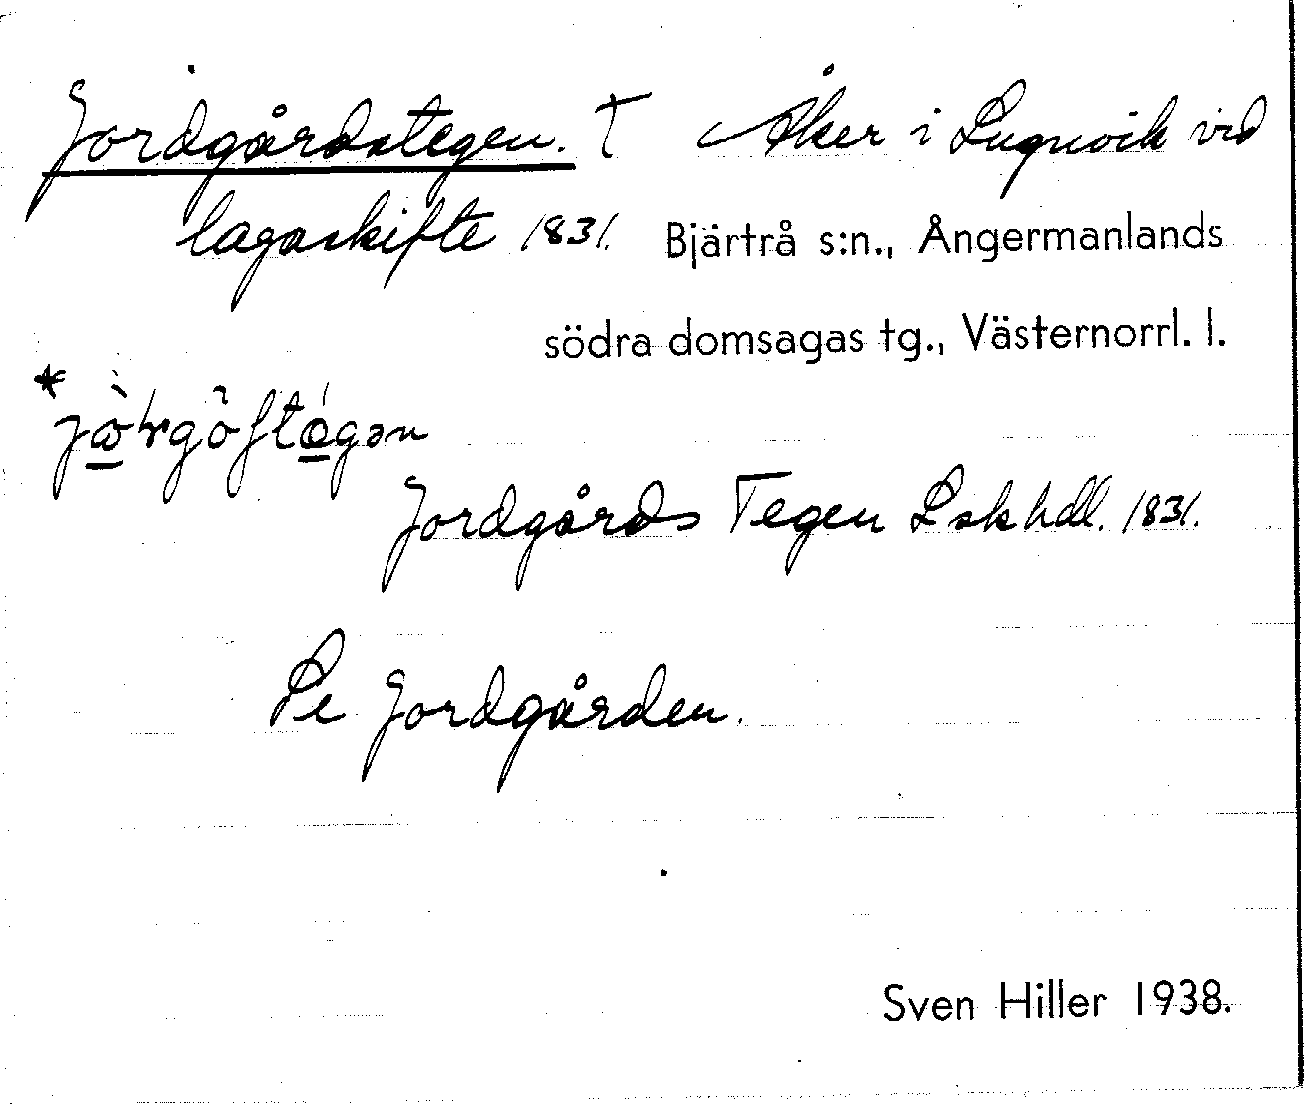 Jordgårdstegen. † Åker i Lugnvik vid
lagaskifte 1831. Bjärtrå s:n., Ångermanlands
södra domsagas tg., Västernorrl. l.
Jordgårds Tegen Lskhdl. 1831.
Se Jordgården.
Sven Hiller 1938.